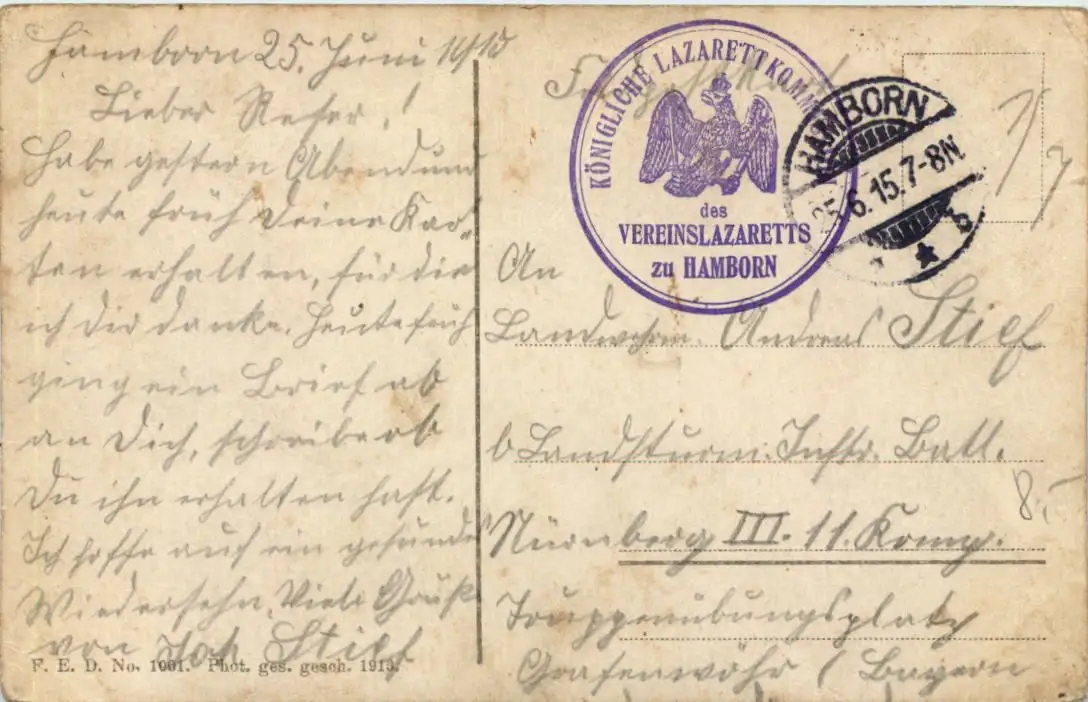 Hamborn 25. Juni 1915
Lieber Neffe!
Habe gestern Abend und
heute früh Deine Kar-
ten erhalten, für die
ich dir danke. Heute früh
ging ein Brief ab
an Dich, schreibe ob
Du ihn erhalten hast.
Ich hoffe auf ein gesundes
Wiedersehn. Viele Grüße
von Joh Stief
F. E. D. No. 1901. Phot. ges. gesch. 1915.
Feldpostkarte
KÖNIGLICHE LAZARETTKOMM
des
VEREINSLAZARETTS
zu HAMBORN
HAMBORN
25.6.15.7-8N.
An
Landwehrm. Andreas Stief
b Landsturm. Inftr. Batl.
Nürnberg III. 11. Komp.
Truppenübungsplatz
Grafenwöhr / Bayern
8,-